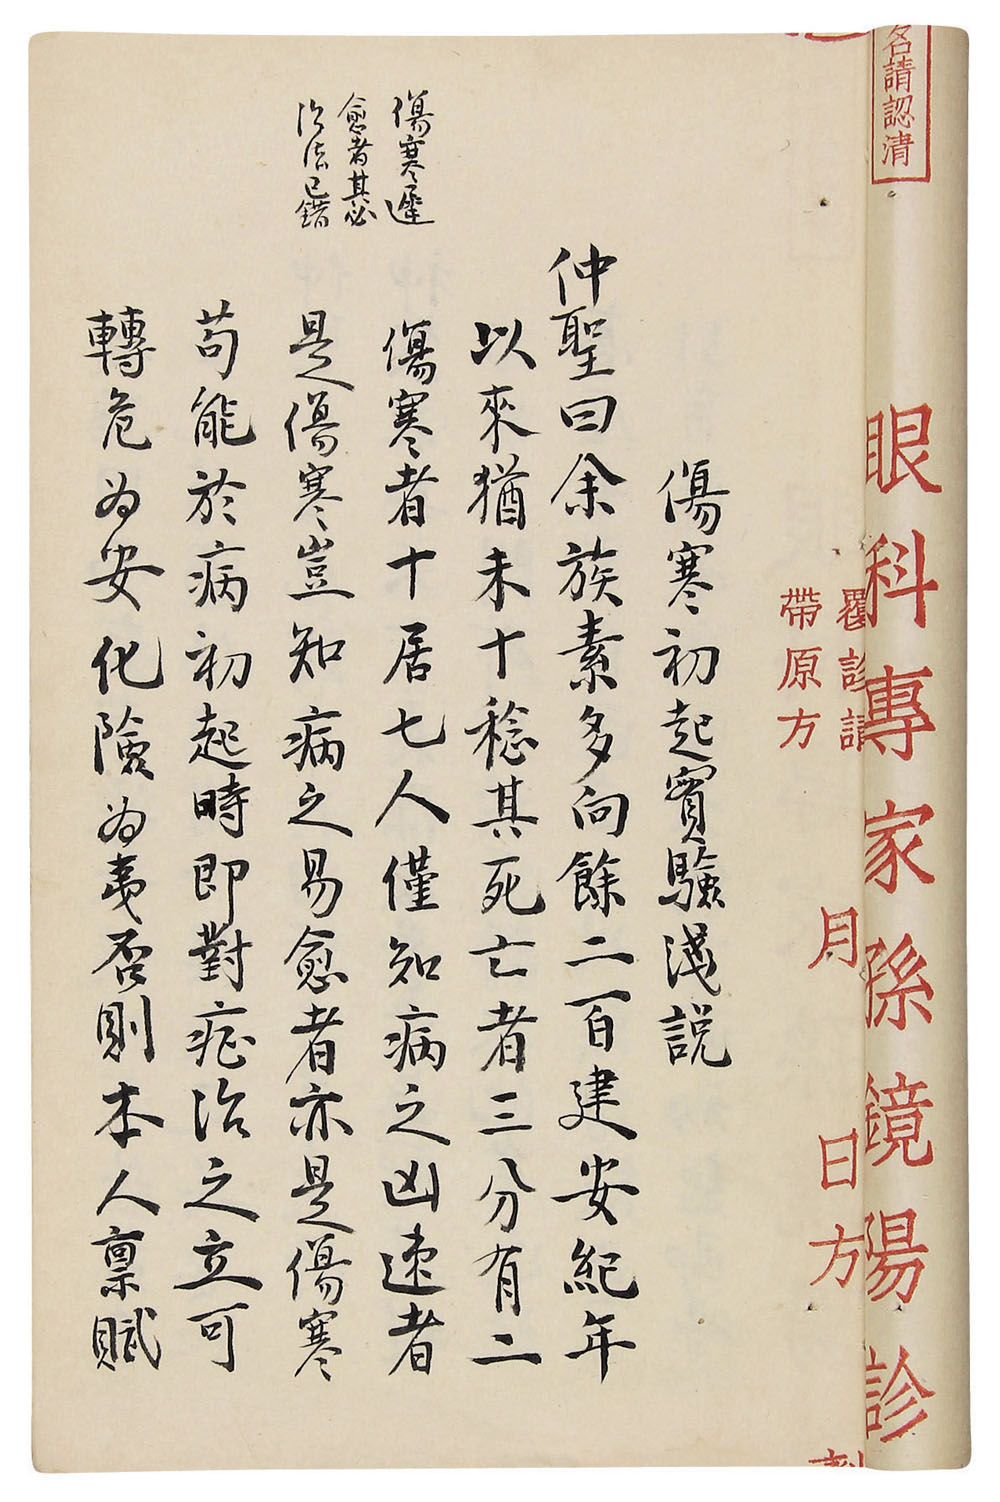 名請認清
眼科專家孫鏡陽診
覆診請
帶原方
月日方
傷寒初起實驗淺説
仲聖曰余族素多向餘二百建安紀年
以來猶未十稔其死亡者三分有二
傷寒者十居七人僅知病之凶速者
是傷寒豈知病之易愈者亦是傷寒
苟能於病初起時即對症治之立可
轉危為安化險為夷否則本人禀賦
傷寒遲
愈者其必
治法已錯